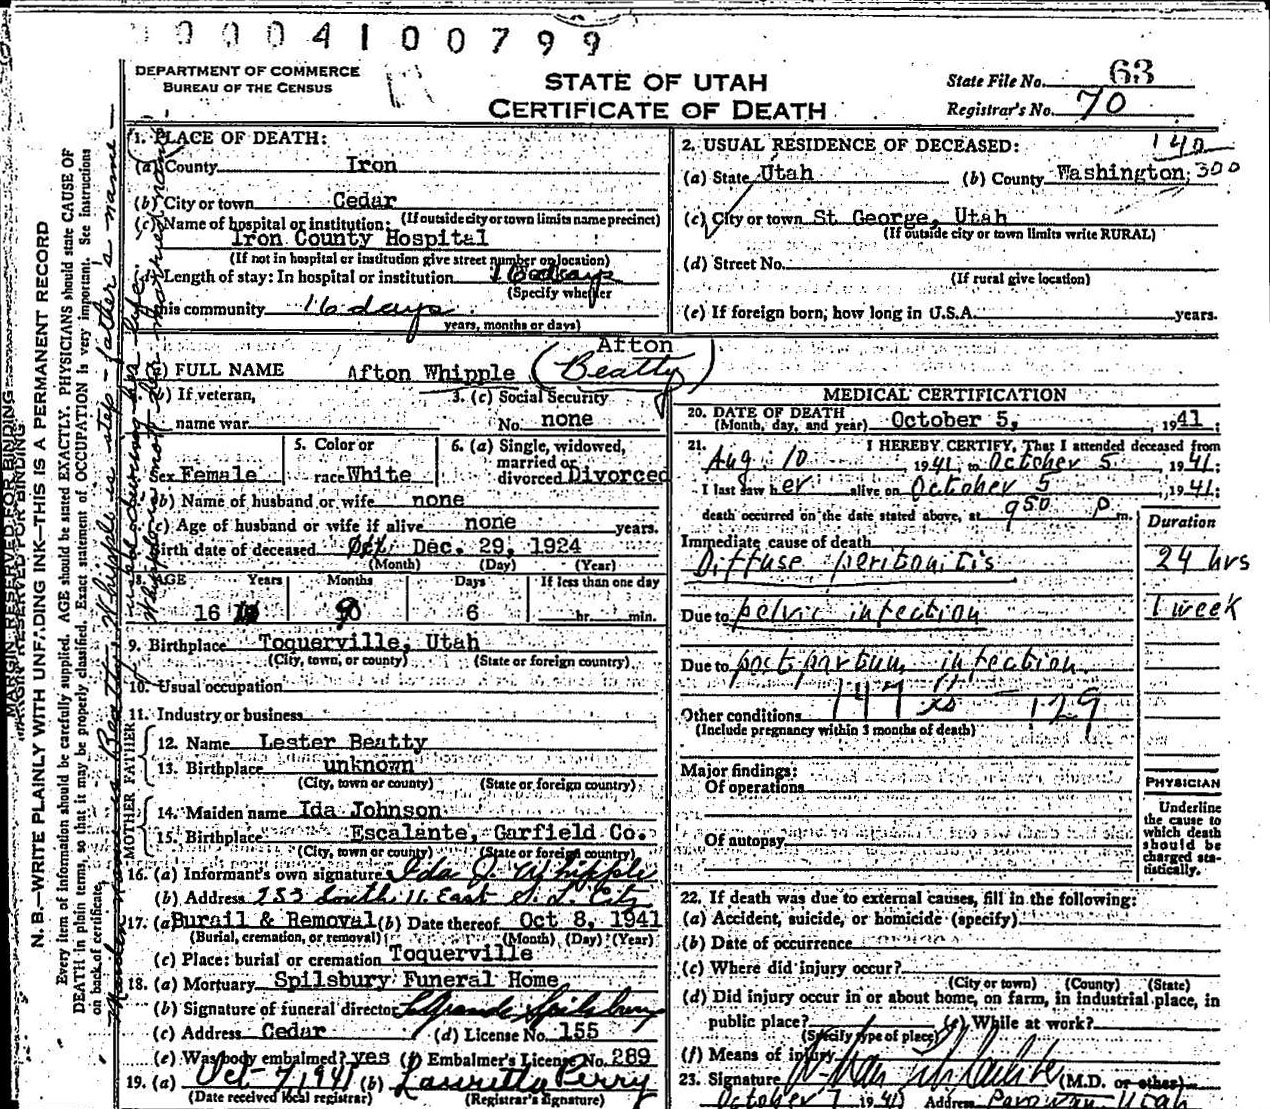 00004100799
DEPARTMENT OF COMMERCE
BUREAU OF THE CENSUS
STATE OF UTAH
CERTIFICATE OF DEATH
State File No. 63
Registrar's No. 70
N. B.—WRITE PLAINLY WITH UNFADING INK—THIS IS A PERMANENT RECORD
Every item of information should be carefully supplied. AGE should be stated EXACTLY. PHYSICIANS should state CAUSE OF
DEATH in plain terms, so that it may be properly classified. Exact statement of OCCUPATION is very important. See instructions
on back of certificate.
MARGIN RESERVED FOR BINDING
1. PLACE OF DEATH:
(a) County Iron
(b) City or town Cedar
(If outside city or town limits name precinct)
(c) Name of hospital or institution:
Iron County Hospital
(If not in hospital or institution give street number or location)
(d) Length of stay: In hospital or institution 16 days
(Specify whether
this community 16 days
years, months or days)
2. USUAL RESIDENCE OF DECEASED: 140
(a) State Utah (b) County Washington 300
(c) City or town St George, Utah
(If outside city or town limits write RURAL)
(d) Street No.
(If rural give location)
(e) If foreign born, how long in U.S.A. years.
Afton
FULL NAME Afton Whipple (Beatty)
(b) If veteran, name war
3. (c) Social Security No. none
Sex Female
5. Color or race White
6. (a) Single, widowed, married or divorced Divorced
(b) Name of husband or wife none
(c) Age of husband or wife if alive none years.
Birth date of deceased Oct Dec. 29, 1924
(Month) (Day) (Year)
AGE Years Months Days If less than one day
16 9 6 hr. min.
9. Birthplace Toquerville, Utah
(City, town, or county) (State or foreign country)
10. Usual occupation
11. Industry or business
FATHER
12. Name Lester Beatty
13. Birthplace unknown
(City, town or county) (State or foreign country)
MOTHER
14. Maiden name Ida Johnson
15. Birthplace Escalante, Garfield Co.
(City, town or county) (State or foreign country)
16. (a) Informant's own signature Ida J. Whipple
(b) Address 253 South 11 East S. L. City
17. (a) Burail & Removal (b) Date thereof Oct 8, 1941
(Burial, cremation, or removal) (Month) (Day) (Year)
(c) Place: burial or cremation Toquerville
18. (a) Mortuary Spilsbury Funeral Home
(b) Signature of funeral director LGrande Spilsbury
(c) Address Cedar (d) License No. 155
(e) Was body embalmed? yes (f) Embalmer's License No. 289
19. (a) Oct-7, 1941 (b) Lauretta Perry
(Date received local registrar) (Registrar's signature)
MEDICAL CERTIFICATION
20. DATE OF DEATH
(Month, day, and year) October 5, 1941;
21. I HEREBY CERTIFY, That I attended deceased from
Aug. 10 1941, to October 5, 1941;
I last saw her alive on October 5, 1941;
death occurred on the date stated above, at 9 50 P m.
Duration
Immediate cause of death
Diffuse peritonitis 24 hrs
Due to pelvic infection 1 week
Due to post partum infection
147 129
Other conditions
(Include pregnancy within 3 months of death)
Major findings:
Of operations
Of autopsy
PHYSICIAN
Underline
the cause to
which death
should be
charged sta-
tistically.
22. If death was due to external causes, fill in the following:
(a) Accident, suicide, or homicide (specify)
(b) Date of occurrence
(c) Where did injury occur?
(City or town) (County) (State)
(d) Did injury occur in or about home, on farm, in industrial place, in
public place? While at work?
(Specify type of place)
(f) Means of injury
23. Signature (M.D. or other)
October 7 1941 Address Parowan Utah